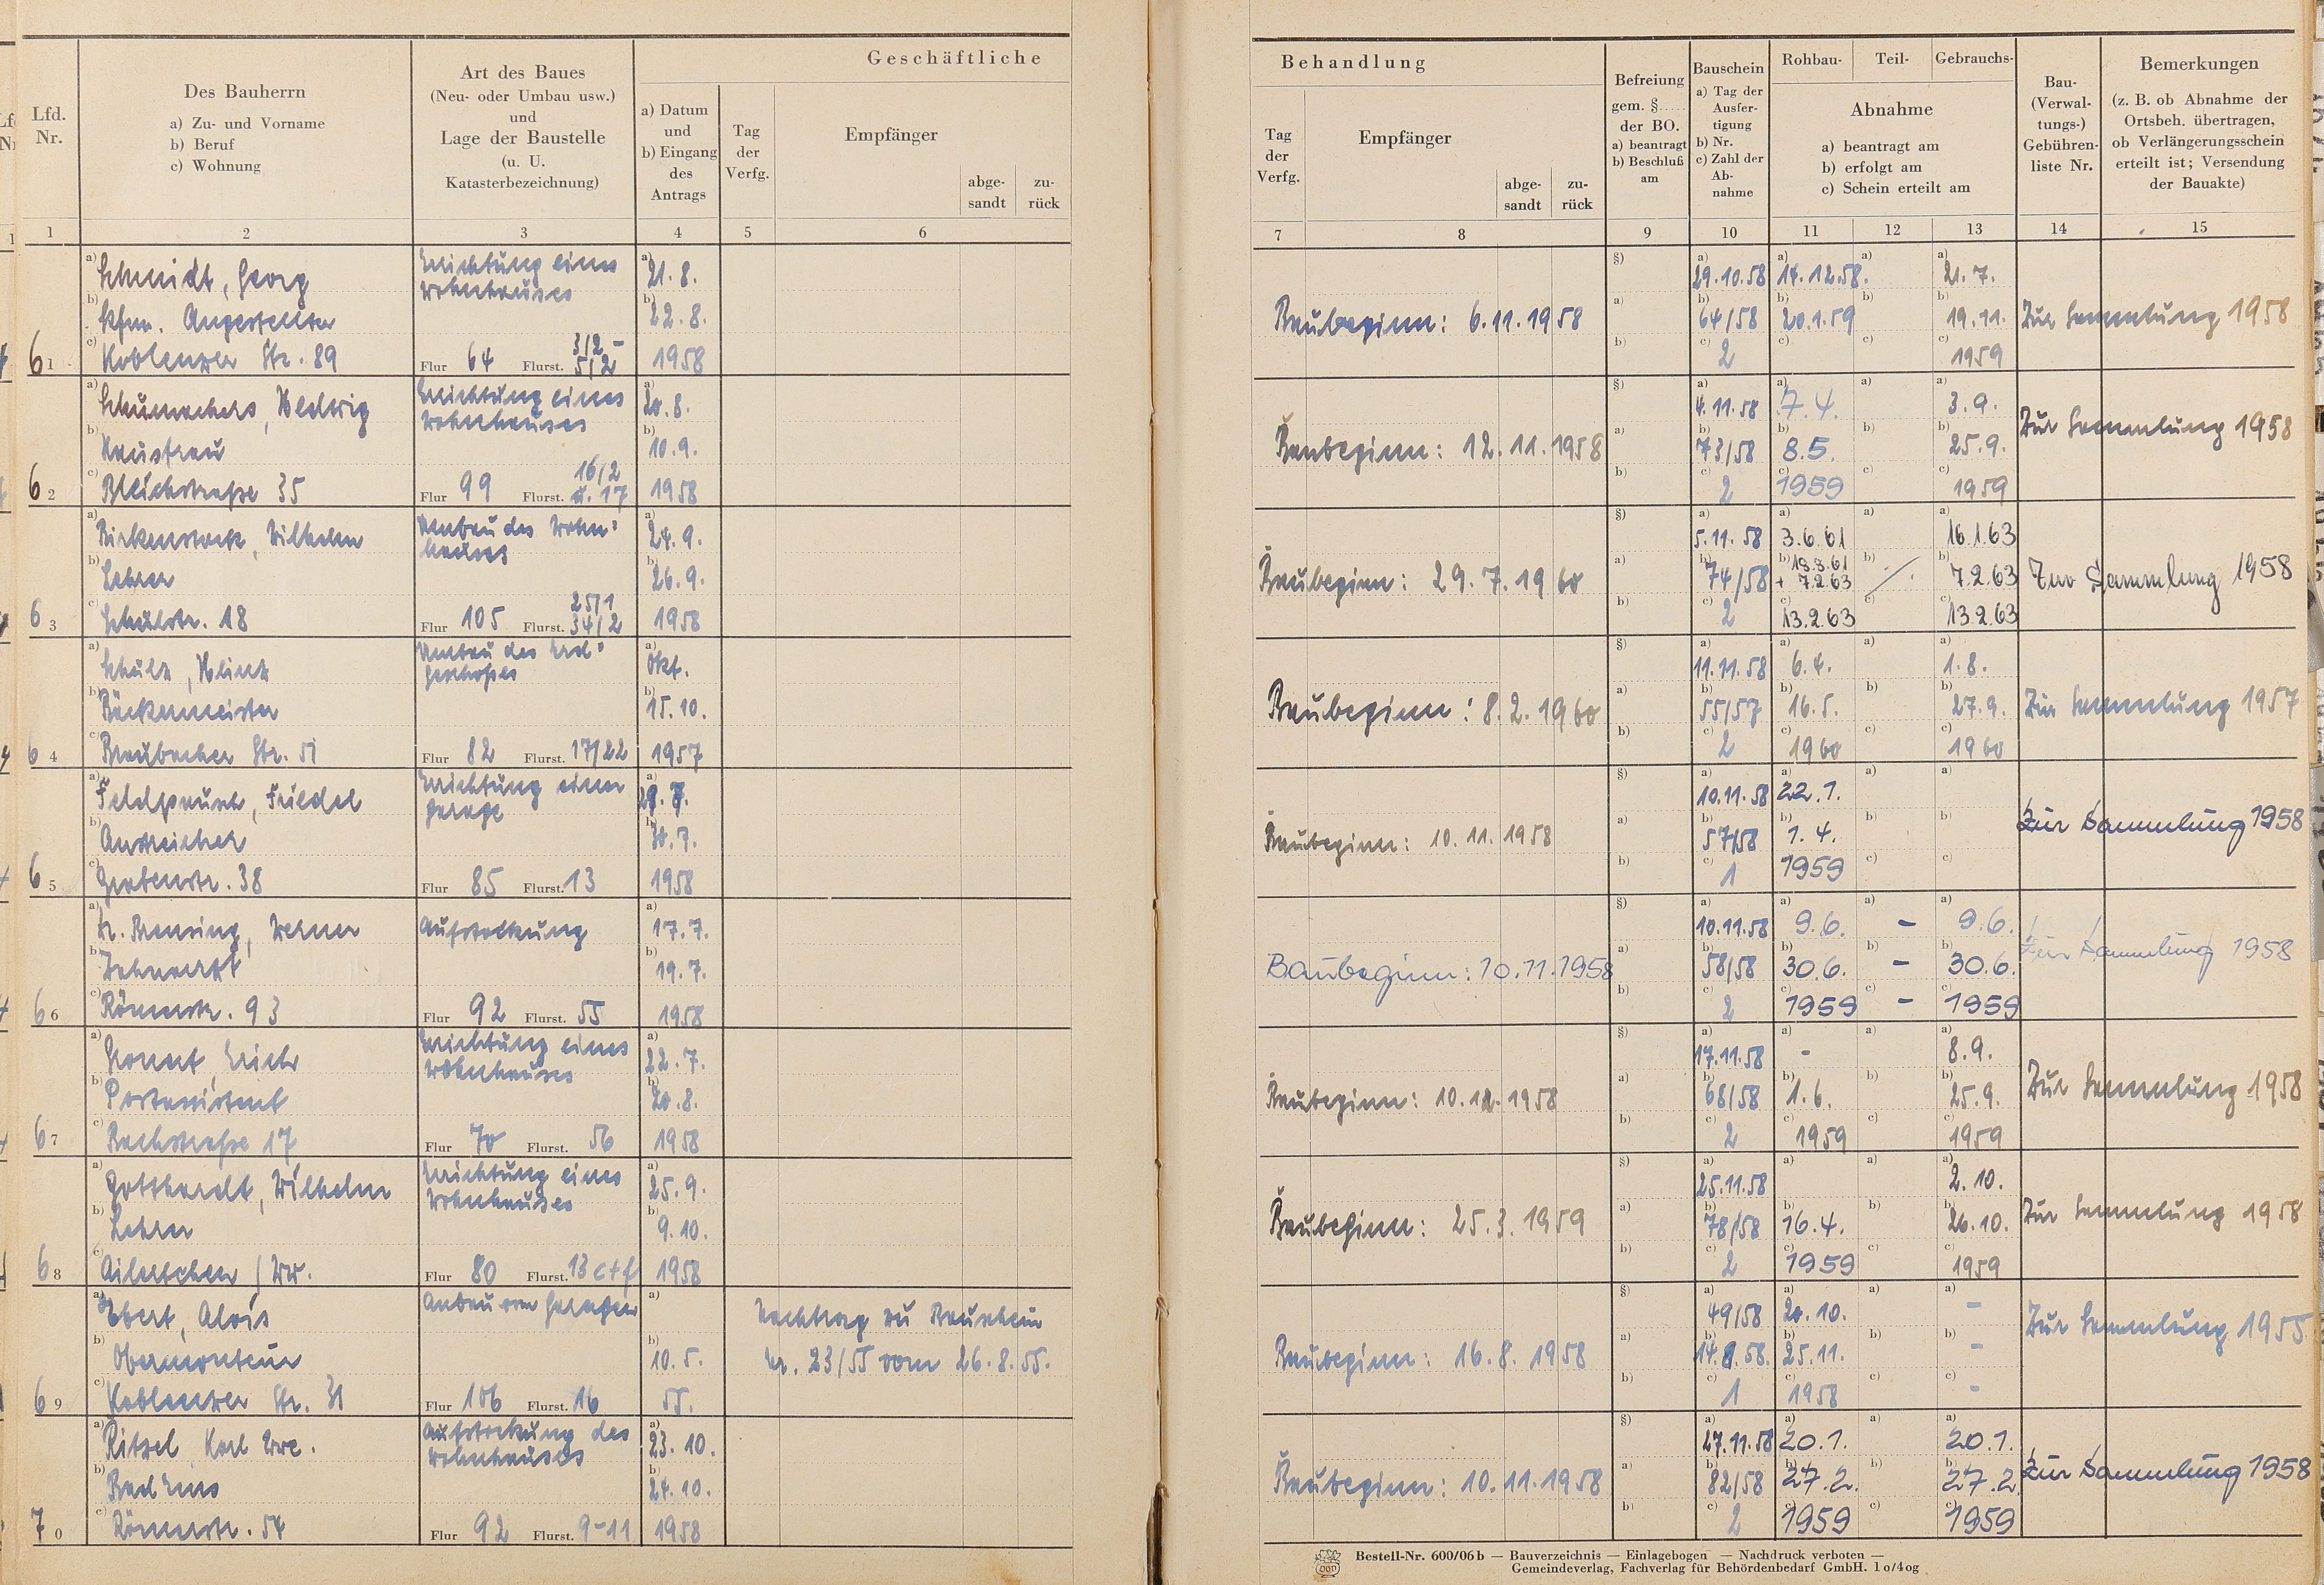 Geschäftliche
Lfd.
Nr.
Des Bauherrn
a) Zu- und Vorname
b) Beruf
c) Wohnung
Art des Baues
(Neu- oder Umbau usw.)
und
Lage der Baustelle
(u. U.
Katasterbezeichnung)
a) Datum
und
b) Eingang
des
Antrags
Tag
der
Verfg.
Empfänger
abge-
sandt
zu-
rück
1 2 3 4 5 6
a) Schmidt, Georg
b) Kfm. Angestellter
61 c) Koblenzer Str. 89
Errichtung eines
Wohnhauses
Flur 64 Flurst. 3/2 -
5/2
a) 21.8.
b) 22.8.
1958
a) Schumachers, Hedwig
b) Hausfrau
62 c) Bleichstraße 35
Errichtung eines
Wohnhauses
Flur 99 Flurst. 16/2
u. 17
a) 20.8.
b) 10.9.
1958
a) Birkenstock, Wilhelm
b) Lehrer
63 c) Schulstr. 18
Umbau des Wohn=
hauses
Flur 105 Flurst. 25/1
34/2
a) 24.9.
b) 26.9.
1958
a) Schulz, Heinz
b) Bäckermeister
64 c) Braubacher Str. 51
Umbau des Erd=
geschoßes
Flur 82 Flurst. 17/22
a) Okt.
b) 15.10.
1957
a) Feldpausch, Friedel
b) Anstreicher
65 c) Grabenstr. 38
Errichtung einer
Garage
Flur 85 Flurst. 13
a) 29.7.
b) 30.7.
1958
a) Dr. Bensing, Werner
b) Zahnarzt
66 c) Römerstr. 93
Aufstockung
Flur 92 Flurst. 55
a) 17.7.
b) 19.7.
1958
a) Erich
b) Postassistent
67 c) Bachstraße 17
Errichtung eines
Wohnhauses
Flur 70 Flurst. 56
a) 22.7.
b) 20.8.
1958
a) Gotthardt, Wilhelm
b) Lehrer
68 c) Ailertchen / Ww.
Errichtung eines
Wohnhauses
Flur 80 Flurst. 13 c+f
a) 25.9.
b) 9.10.
1958
a) Ebert, Alois
b) Obermonteur
69 c) Koblenzer Str. 31
Anbau von Garagen
Flur 106 Flurst. 16
a)
b) 10.5.
55.
Nachtrag zu Bauschein
Nr. 23/55 vom 26.8.55.
a) Ritzel Karl Wwe.
b) Bad Ems
70 c) Römerstr. 54
Aufstockung des
Wohnhauses
Flur 92 Flurst. 9-11
a) 23.10.
b) 24.10.
1958
Behandlung
Tag
der
Verfg.
Empfänger
abge-
sandt
zu-
rück
Befreiung
gem. §.....
der BO.
a) beantragt
b) Beschluß
am
Bauschein
a) Tag der
Ausfer-
tigung
b) Nr.
c) Zahl der
Ab-
nahme
Rohbau- Teil- Gebrauchs-
Abnahme
a) beantragt am
b) erfolgt am
c) Schein erteilt am
Bau-
(Verwal-
tungs-)
Gebühren-
liste Nr.
Bemerkungen
(z. B. ob Abnahme der
Ortsbeh. übertragen,
ob Verlängerungsschein
erteilt ist; Versendung
der Bauakte)
7 8 9 10 11 12 13 14 15
§) a) 29.10.58 a) 14.12.58. a) a) 21.7.
Baubeginn: 6.11.1958 a) b) 64/58 b) 20.1.59 b) b) 19.11. Zur Sammlung 1958
b) c) 2 c) c) c) 1959
§) a) 4.11.58 a) 7.4. a) a) 3.9.
Baubeginn: 12.11.1958 a) b) 73/58 b) 8.5. b) b) 25.9. Zur Sammlung 1958
b) c) 2 c) 1959 c) c) 1959
§) a) 5.11.58 a) 3.6.61 a) a) 16.1.63
Baubeginn: 29.7.1960 a) b) 74/58 b) 18.8.61 b) b) 7.2.63 Zur Sammlung 1958
+ 7.2.63
b) c) 2 c) 13.2.63 c) c) 13.2.63
§) a) 11.11.58 a) 6.4. a) a) 1.8.
Baubeginn: 8.2.1960 a) b) 55/57 b) 16.5. b) b) 27.9. Zur Sammlung 1957
b) c) 2 c) 1960 c) c) 1960
§) a) 10.11.58 a) 22.1. a) a)
Baubeginn: 10.11.1958 a) b) 57/58 b) 1.4. b) b) Zur Sammlung 1958
b) c) 1 c) 1959 c) c)
§) a) 10.11.58 a) 9.6. a) - a) 9.6.
Baubeginn: 10.11.1958 a) b) 58/58 b) 30.6. b) - b) 30.6. Zur Sammlung 1958
b) c) 2 c) 1959 c) - c) 1959
§) a) 17.11.58 a) - a) a) 8.9.
Baubeginn: 10.12.1958 a) b) 68/58 b) 1.6. b) b) 25.9. Zur Sammlung 1958
b) c) 2 c) 1959 c) c) 1959
§) a) 25.11.58 a) a) a) 2.10.
Baubeginn: 25.3.1959 a) b) 78/58 b) 16.4. b) b) 26.10. Zur Sammlung 1958
b) c) 2 c) 1959 c) c) 1959
§) a) 49/58 a) 20.10. a) a) -
Baubeginn: 16.8.1958 a) b) 14.8.58. b) 25.11. b) b) - Zur Sammlung 1955
b) c) 1 c) 1958 c) c) -
§) a) 27.11.58 a) 20.1. a) a) 20.1.
Baubeginn: 10.11.1958 a) b) 82/58 b) 27.2. b) b) 27.2. Zur Sammlung 1958
b) c) 2 c) 1959 c) c) 1959
Bestell-Nr. 600/06 b — Bauverzeichnis — Einlagebogen — Nachdruck verboten —
Gemeindeverlag, Fachverlag für Behördenbedarf GmbH. 1 0/4 0g